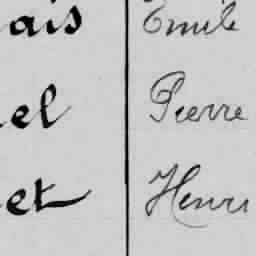 ais Emile
el Pierre
et Henri